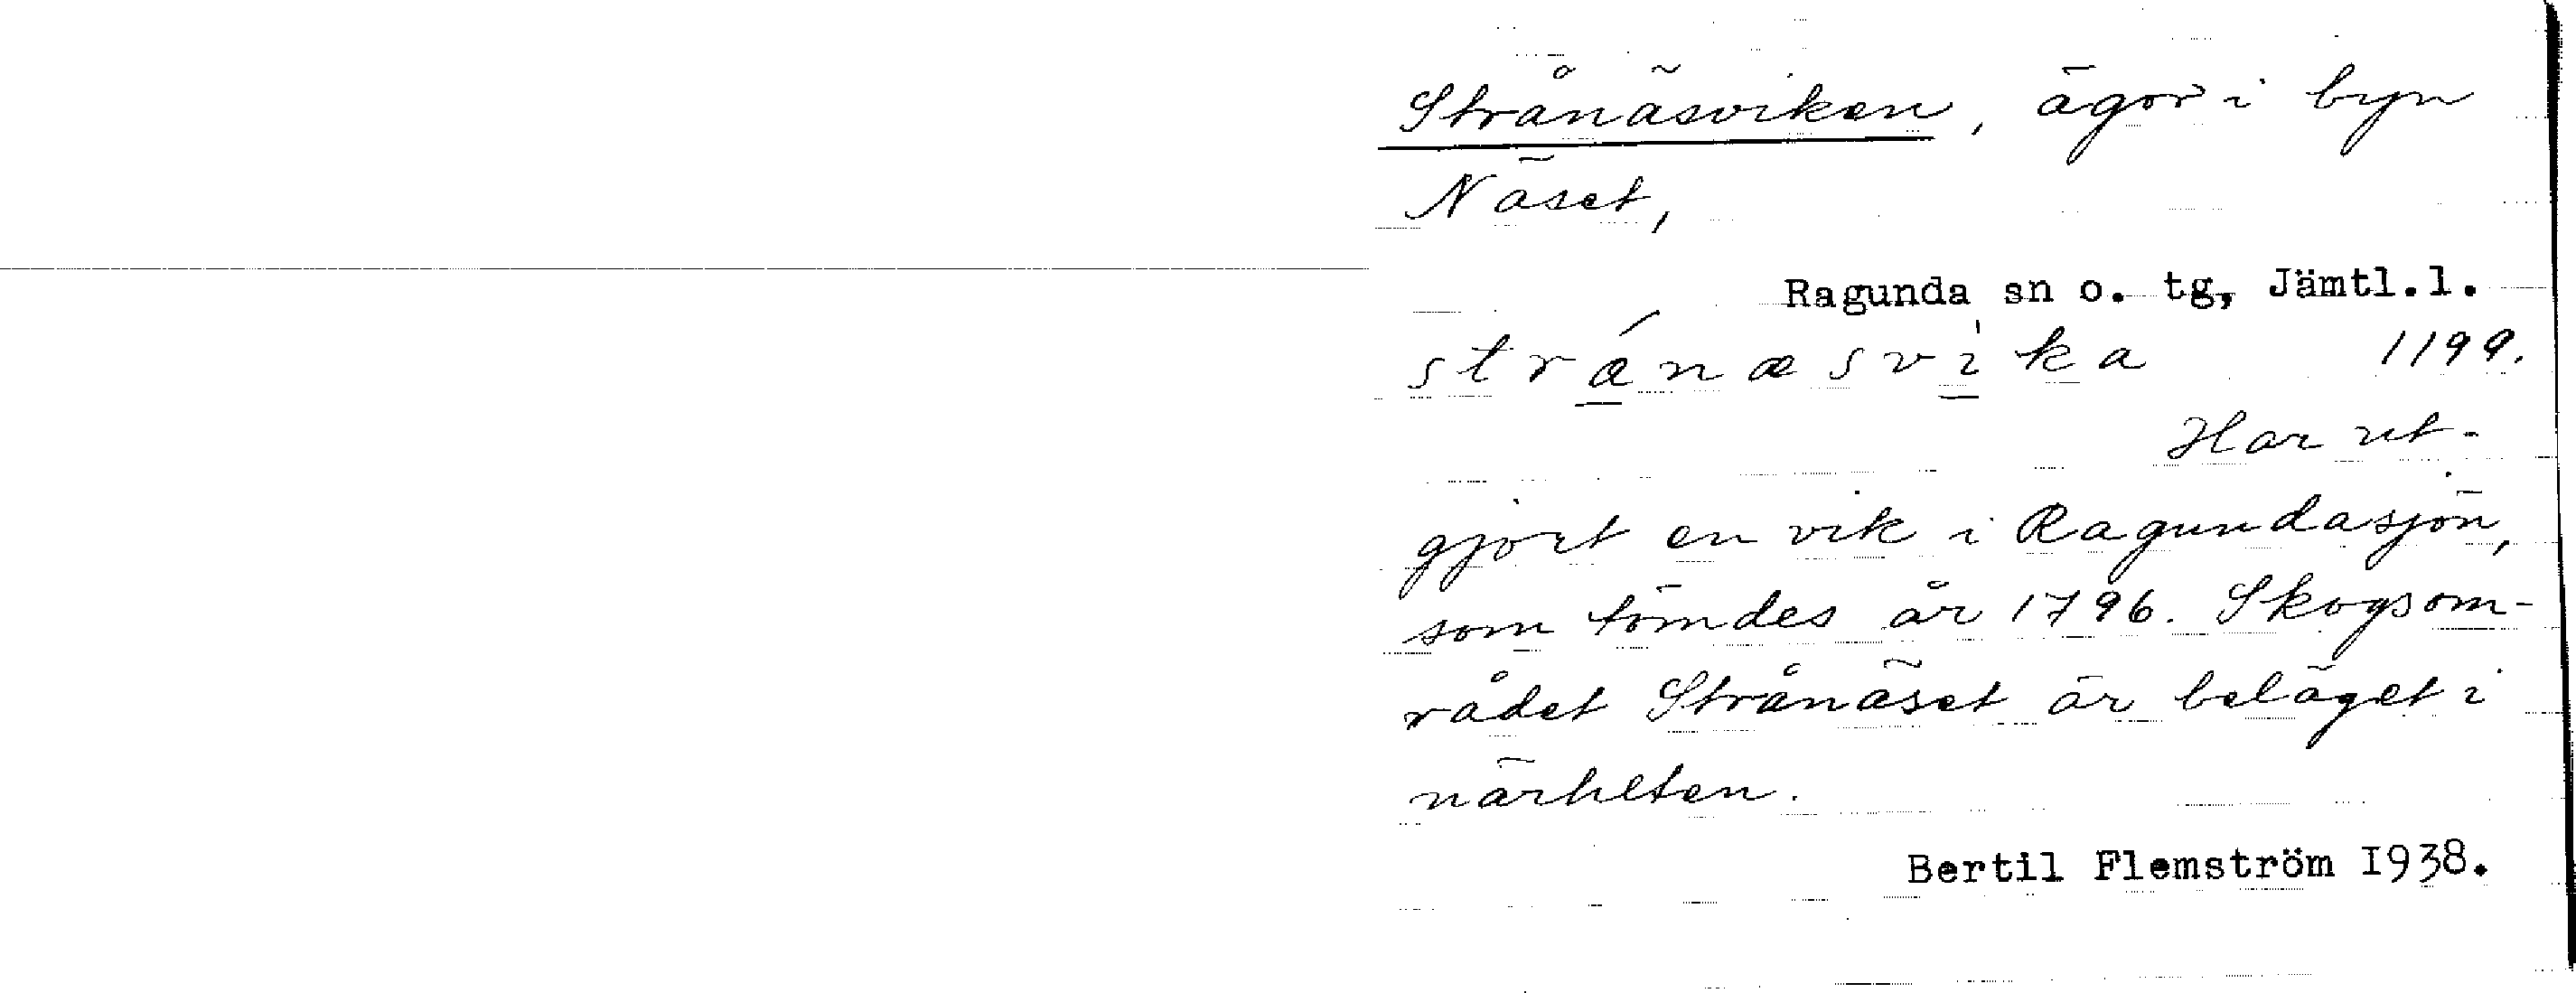 Strånäsviken, ägor i byn
Näset,
Ragunda sn o. tg, Jämtl.l.
stránæsvìka 1199.
Har ut-
gjort en vik i Ragundasjön,
som tömdes år 1796. Skogsom-
rådet Strånäset är beläget i
närheten.
Bertil Flemström 1938.